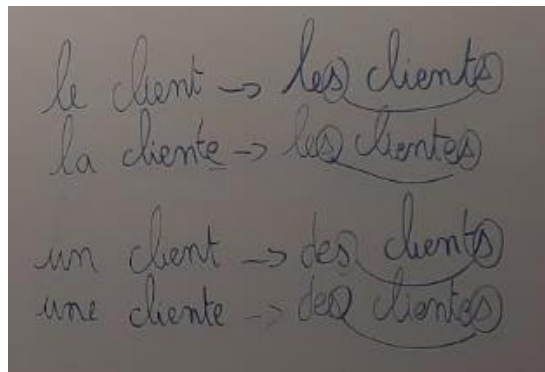 le client -> les clients
la cliente -> les clientes
un client -> des clients
une cliente -> des clientes